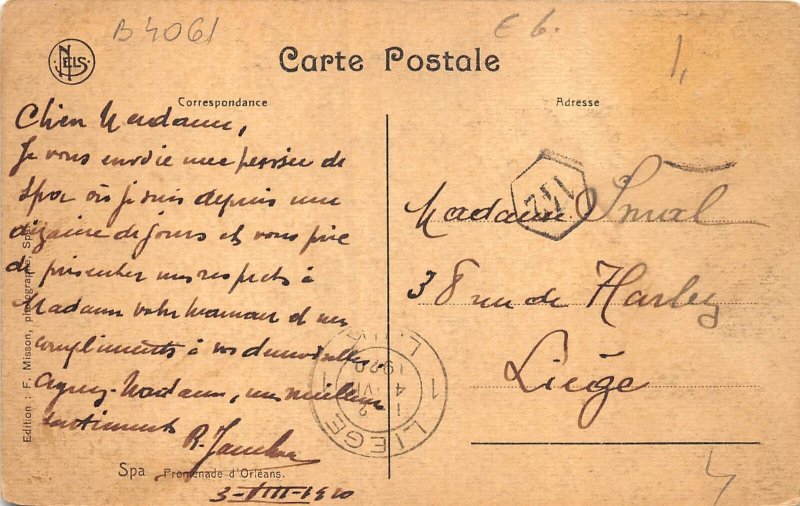 B 4061
E 6.
1,
NELS
Carte Postale
Correspondance
Adresse
Chère Madame,
Je vous envoie une pensée de
Spa où je suis depuis une
dizaine de jours et vous prie
de présenter mes respects à
Madame votre maman et mes
compliments à vos demoiselles.
Agréez, Madame, mes meilleurs
sentiments
R.
3-VIII-1920
Spa Promenade d'Orléans.
Edition : F. Misson, photographe, Spa
142
Madame
38 rue de Harlez
Liège
LIEGE 1
1920